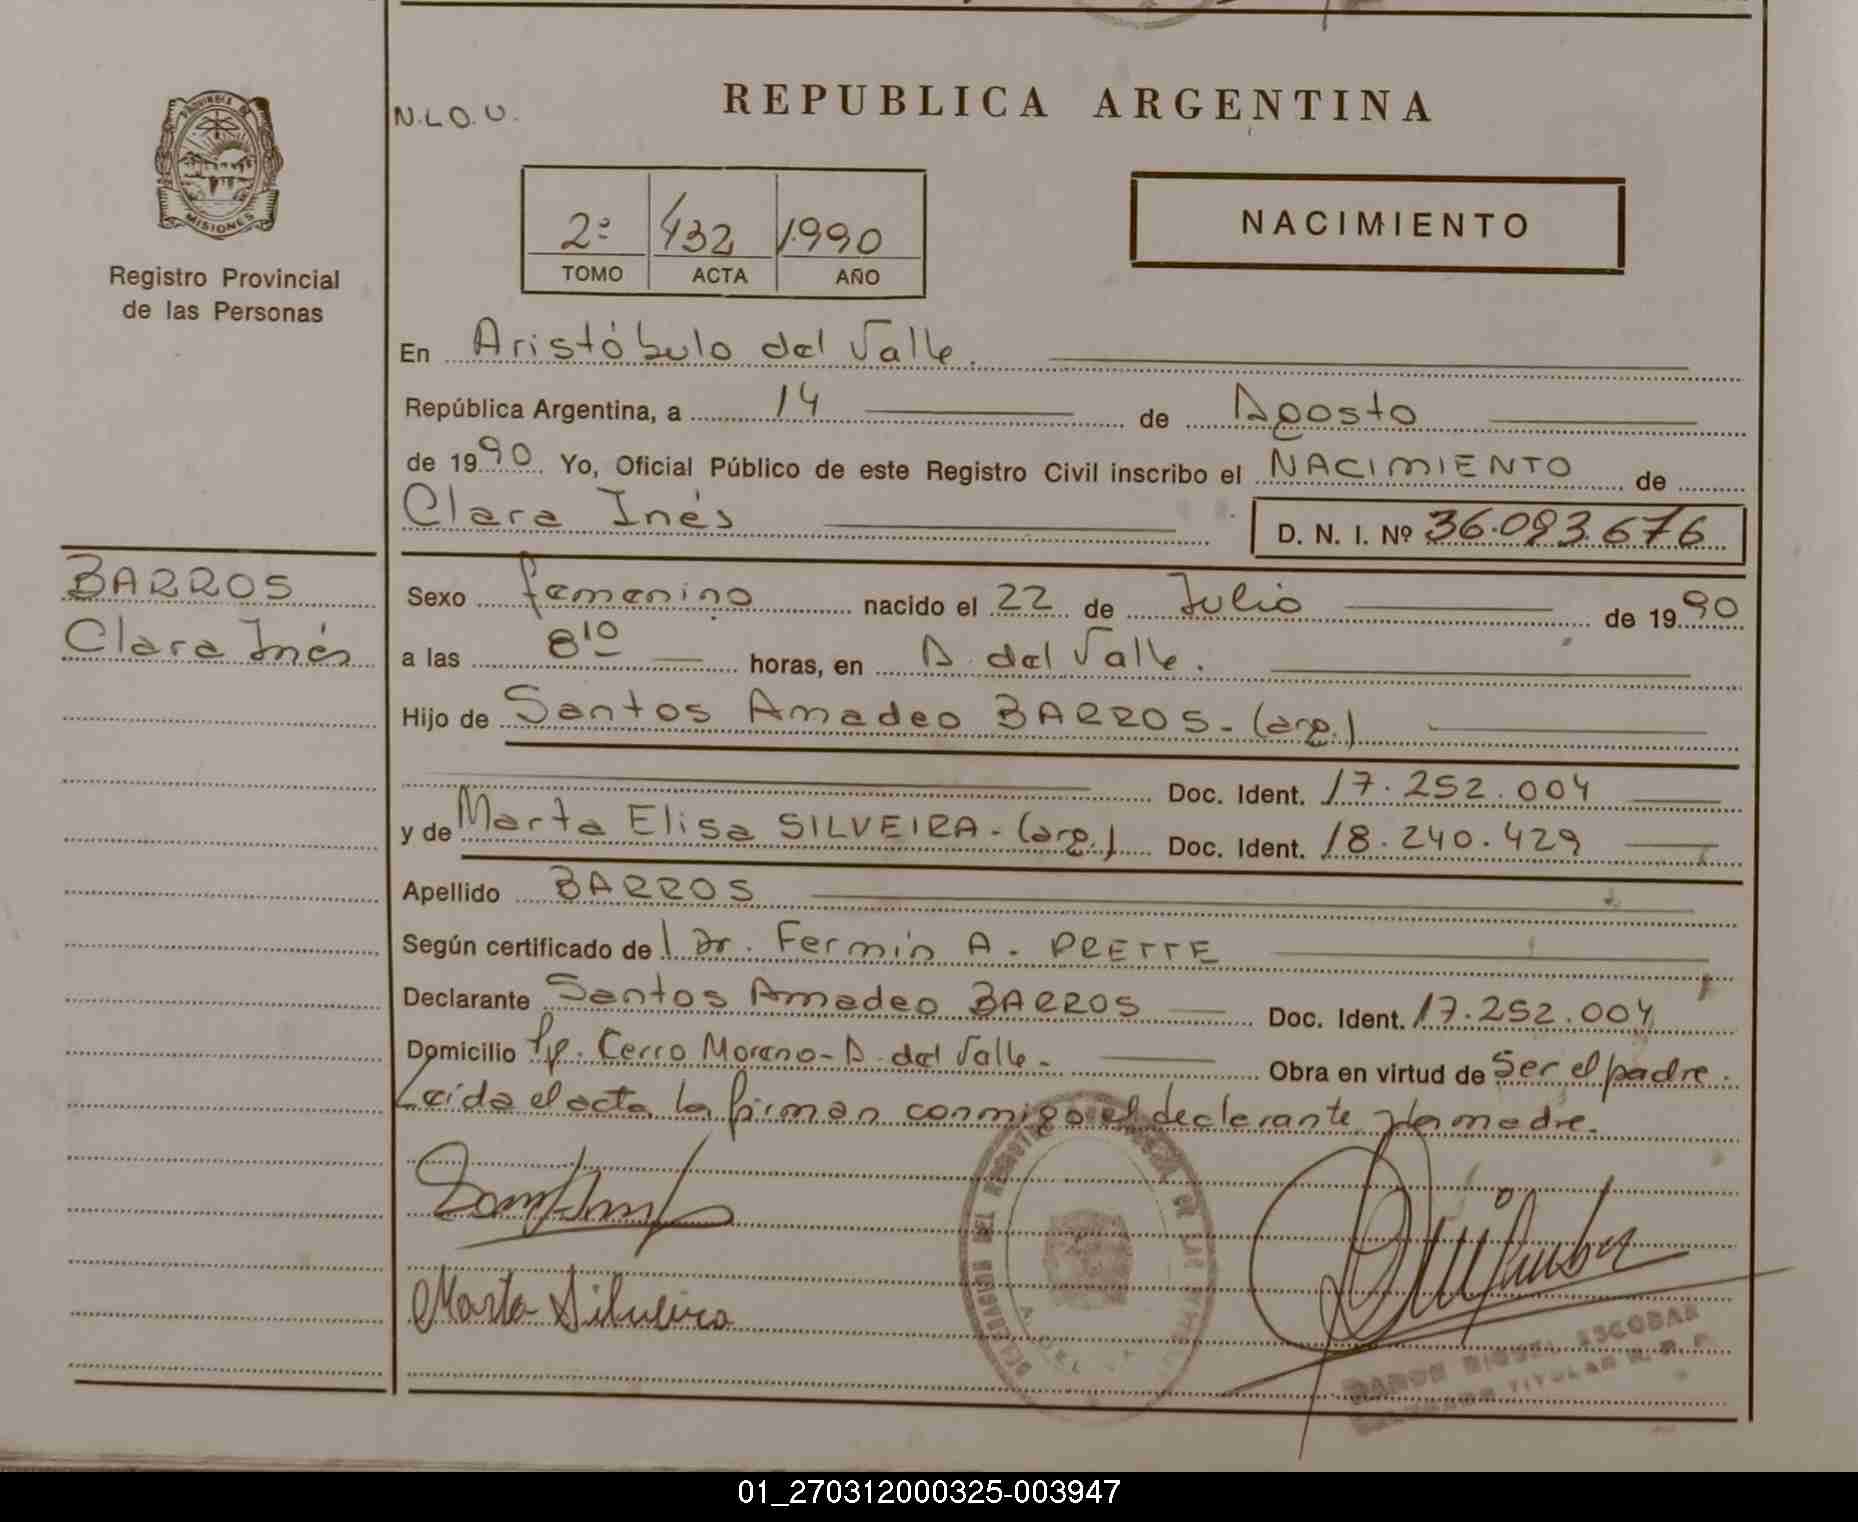 PROVINCIA DE
MISIONES
Registro Provincial
de las Personas
BARROS
Clara Inés
N.L.O.U.
REPUBLICA ARGENTINA
2º 432 1990
TOMO ACTA AÑO
NACIMIENTO
En Aristóbulo del Valle.
República Argentina, a 14 de Agosto
de 1990 Yo, Oficial Público de este Registro Civil inscribo el NACIMIENTO de
Clara Inés D. N. I. Nº 36.093.676
Sexo femenino nacido el 22 de Julio de 1990
a las 8 10 horas, en A. del Valle.
Hijo de Santos Amadeo BARROS - (arg.)
Doc. Ident. 17.252.004
y de Marta Elisa SILVEIRA - (arg.) Doc. Ident. 18.240.429
Apellido BARROS
Según certificado de l Dr. Fermín A. PRETTE
Declarante Santos Amadeo BARROS Doc. Ident. 17.252.004
Domicilio Pje. Cerro Moreno - A. del Valle - Obra en virtud de ser el padre.
Leída el acta la firman conmigo el declarante y la madre.
Marta Silveira
DELEGACION DEL REGISTRO PROVINCIAL DE LAS PERSONAS
A. DEL VALLE
RAMON MIGUEL ESCOBAR
TITULAR R. P. P.
01_270312000325-003947